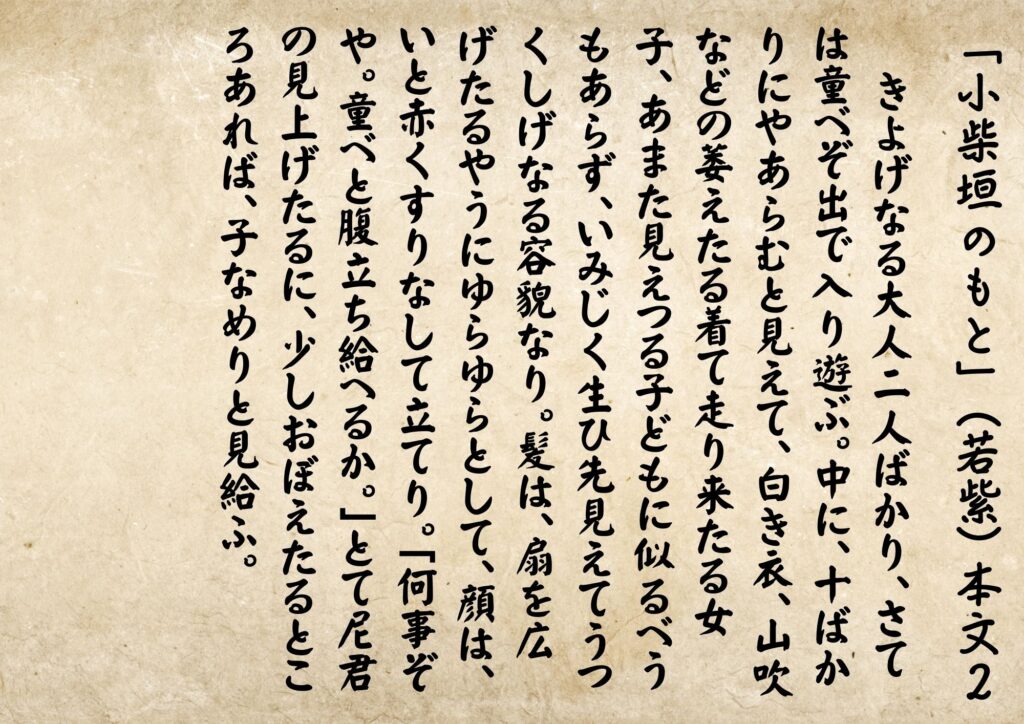 「小柴垣のもと」（若紫）本文２
きよげなる大人二人ばかり、さて
は童べぞ出で入り遊ぶ。中に、十ばか
りにやあらむと見えて、白き衣、山吹
などの萎えたる着て走り来たる女
子、あまた見えつる子どもに似るべう
もあらず、いみじく生ひ先見えてうつ
くしげなる容貌なり。髪は、扇を広
げたるやうにゆらゆらとして、顔は、
いと赤くすりなして立てり。「何事ぞ
や。童べと腹立ち給へるか。」とて尼君
の見上げたるに、少しおぼえたるとこ
ろあれば、子なめりと見給ふ。